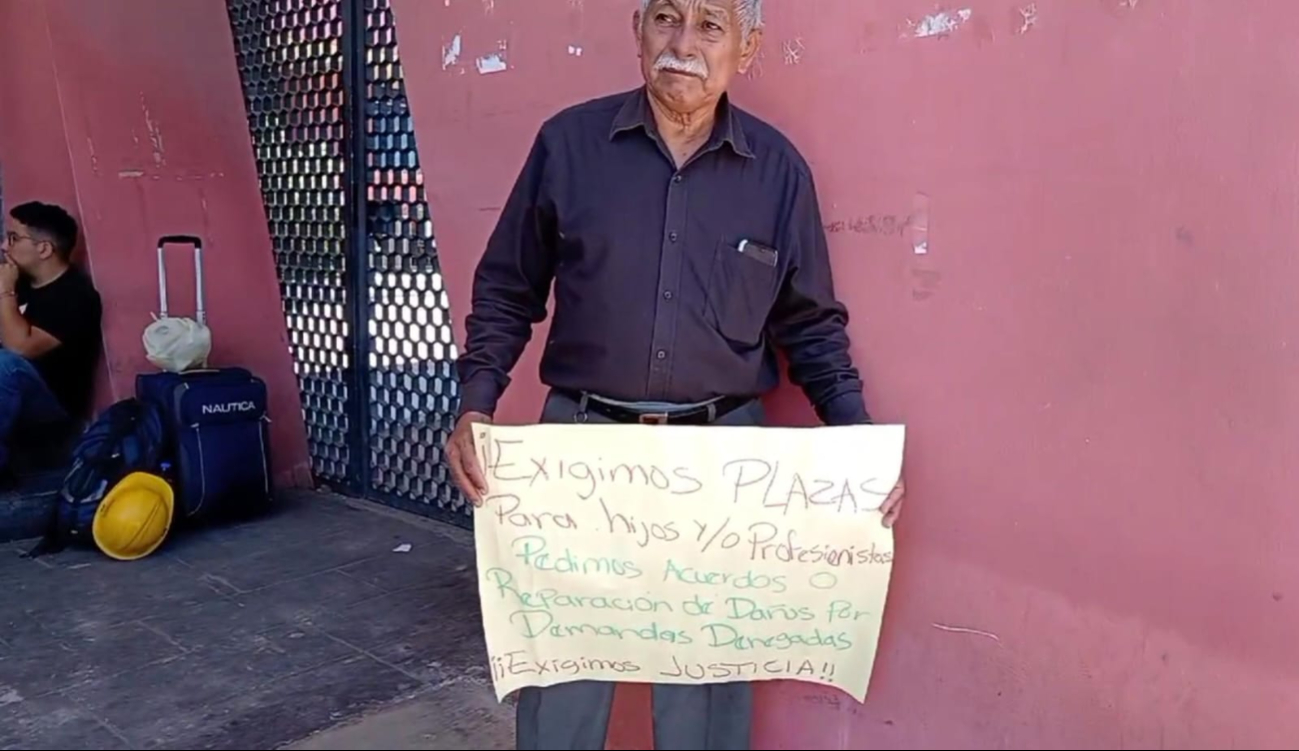 NAUTICA
¡¡Exigimos PLAZAS
Para hijos y/o Profesionistas
Pedimos Acuerdos O
Reparación de Daños Por
Demandas Denegadas
¡¡Exigimos JUSTICIA!!